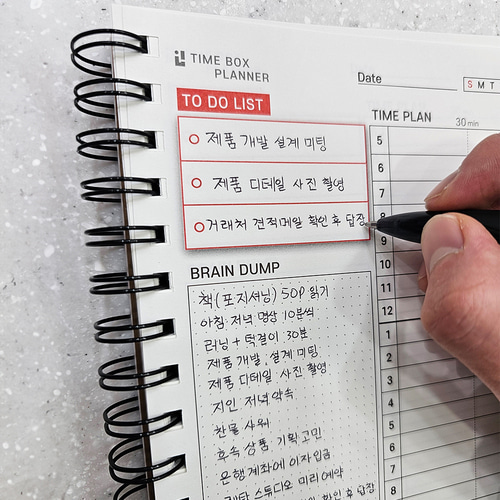 TIME BOX
PLANNER
Date
S M T
TO DO LIST
제품 개발 설계 미팅
제품 디테일 사진 촬영
거래처 견적메일 확인 후 답장
BRAIN DUMP
책(포지셔닝) 50P 읽기
아침 저녁 명상 10분씩
러닝 + 턱걸이 30분
제품 개발, 설계 미팅
제품 디테일 사진 촬영
지인 저녁 약속
찬물 샤워
후속 상품 기획 고민
은행 계좌에 이자 입금
스튜디오 미리 예약
확인 후 답장
TIME PLAN
30 min
5
6
7
8
9
10
11
12
1
2
3
4
5
6
7
8